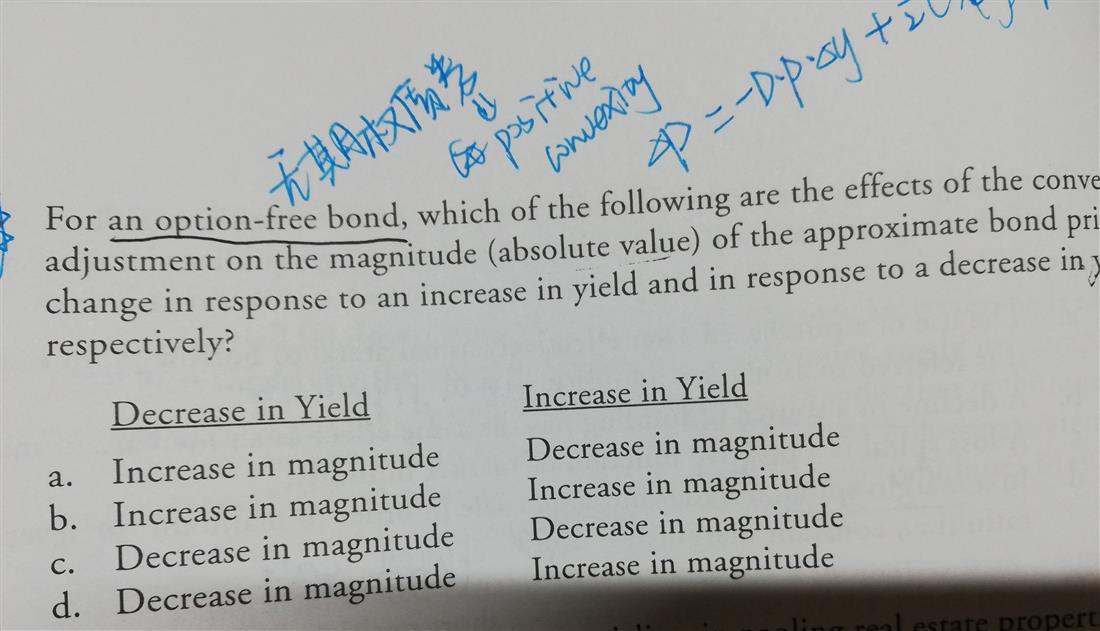 无期权债券
positive
convexity
ΔP = -D·P·Δy +
For an option-free bond, which of the following are the effects of the conve
adjustment on the magnitude (absolute value) of the approximate bond pri
change in response to an increase in yield and in response to a decrease in y
respectively?
Decrease in Yield Increase in Yield
a. Increase in magnitude Decrease in magnitude
b. Increase in magnitude Increase in magnitude
c. Decrease in magnitude Decrease in magnitude
d. Decrease in magnitude Increase in magnitude
real estate propert